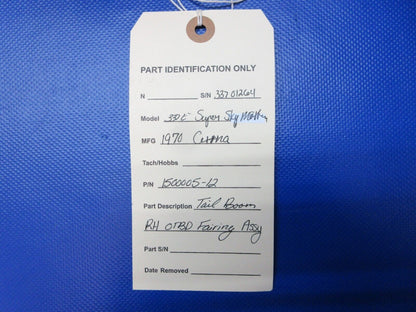 PART IDENTIFICATION ONLY
N S/N 33701264
Model 337E Super Skymaster
MFG 1970 Cessna
Tach/Hobbs
P/N 1500005-12
Part Description Tail Boom
RH OTBD Fairing Assy
Part S/N
Date Removed